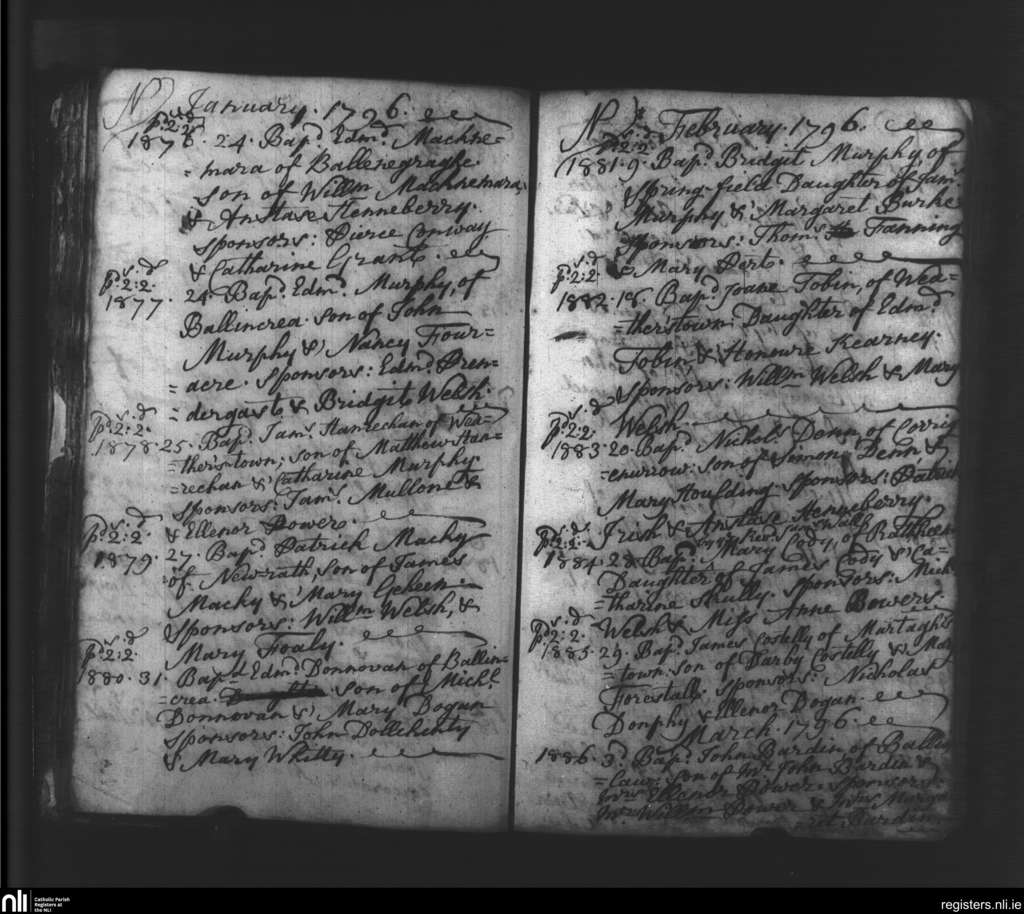 No January. 1796.
s. d
pd. 2:2.
1876. 24. Bapd. Edmd. Mackne=
=mara of Ballenegraghe
son of Willm Macknemara,
& Anstase Henneberry.
Sponsors: Pierce Conway
& Catharine Grant.
s. d
pd. 2:2.
1877. 24. Bapd. Edmd. Murphy, of
Ballincrea. son of John
Murphy & Nancy Four=
=acre. Sponsors: Edmd. Pren=
=dergast & Bridgit Welsh.
s. d
pd. 2:2.
1878. 25. Bapd. Jams. Hanrechan of Wea=
=therstown; son of Matthew Han=
=rechan & Catharine Murphy
Sponsors: Jams. Mullone &
& Ellenor Power.
s. d
pd. 2:2
1879. 27. Bapd. Patrich Macky
of Newrath, son of James
Macky & Mary
Sponsors: Willm Welsh, &
Mary Foaly.
s. d
pd. 2:2.
1880. 31. Bapd. Edmd. Donnovan of Ballin=
=crea. son of Michl.
Donnovan & Mary Bogan
Sponsors: John Dollehenty
& Mary Whitty.
No February. 1796.
s. d
pd. 2:2.
1881. 9. Bapd. Bridgit Murphy of
Spring-field Daughter of Jams.
Murphy & Margaret Burke
Sponsors: Thoms. Fanning
& Mary
s. d
pd. 2:2.
1882. 18. Bapd. Joane Tobin, of Wea=
=therstown; Daughter of Edmd.
Tobin, & Honoure Kearney:
Sponsors: Willm Welsh & Mary
Welsh.
s. d
pd. 2:2.
1883. 20. Bapd. Nichols. Denn of Corrig=
=enurrow: son of Simon Denn &
Mary Houlding. Sponsors: Patrick
Irish & Anstase Henneberry.
s. d
pd. 2:2.
1884. 28. Bapd. Mary Cody, of
Daughter of James Cody & Ca=
=tharine Skully. Sponsors: Mich
Welsh & Miss Anne Bowers.
s. d
pd. 2:2.
1885. 29. Bapd. James Costelly of Murtagh's
=town. son of Darby Costelly & Mary
Forestall. Sponsors: Nicholas
Donphy & Ellenor Bogan.
March. 1796.
1886. 3d. Bapd. John Bardin of Ballin
=law: son of Mr. John Bardin &
Mrs Ellenor Power. Sponsors:
Mr. Willm Power & Mrs Marga
=ret Bardin
nli
Catholic Parish
Registers at
the NLI
registers.nli.ie